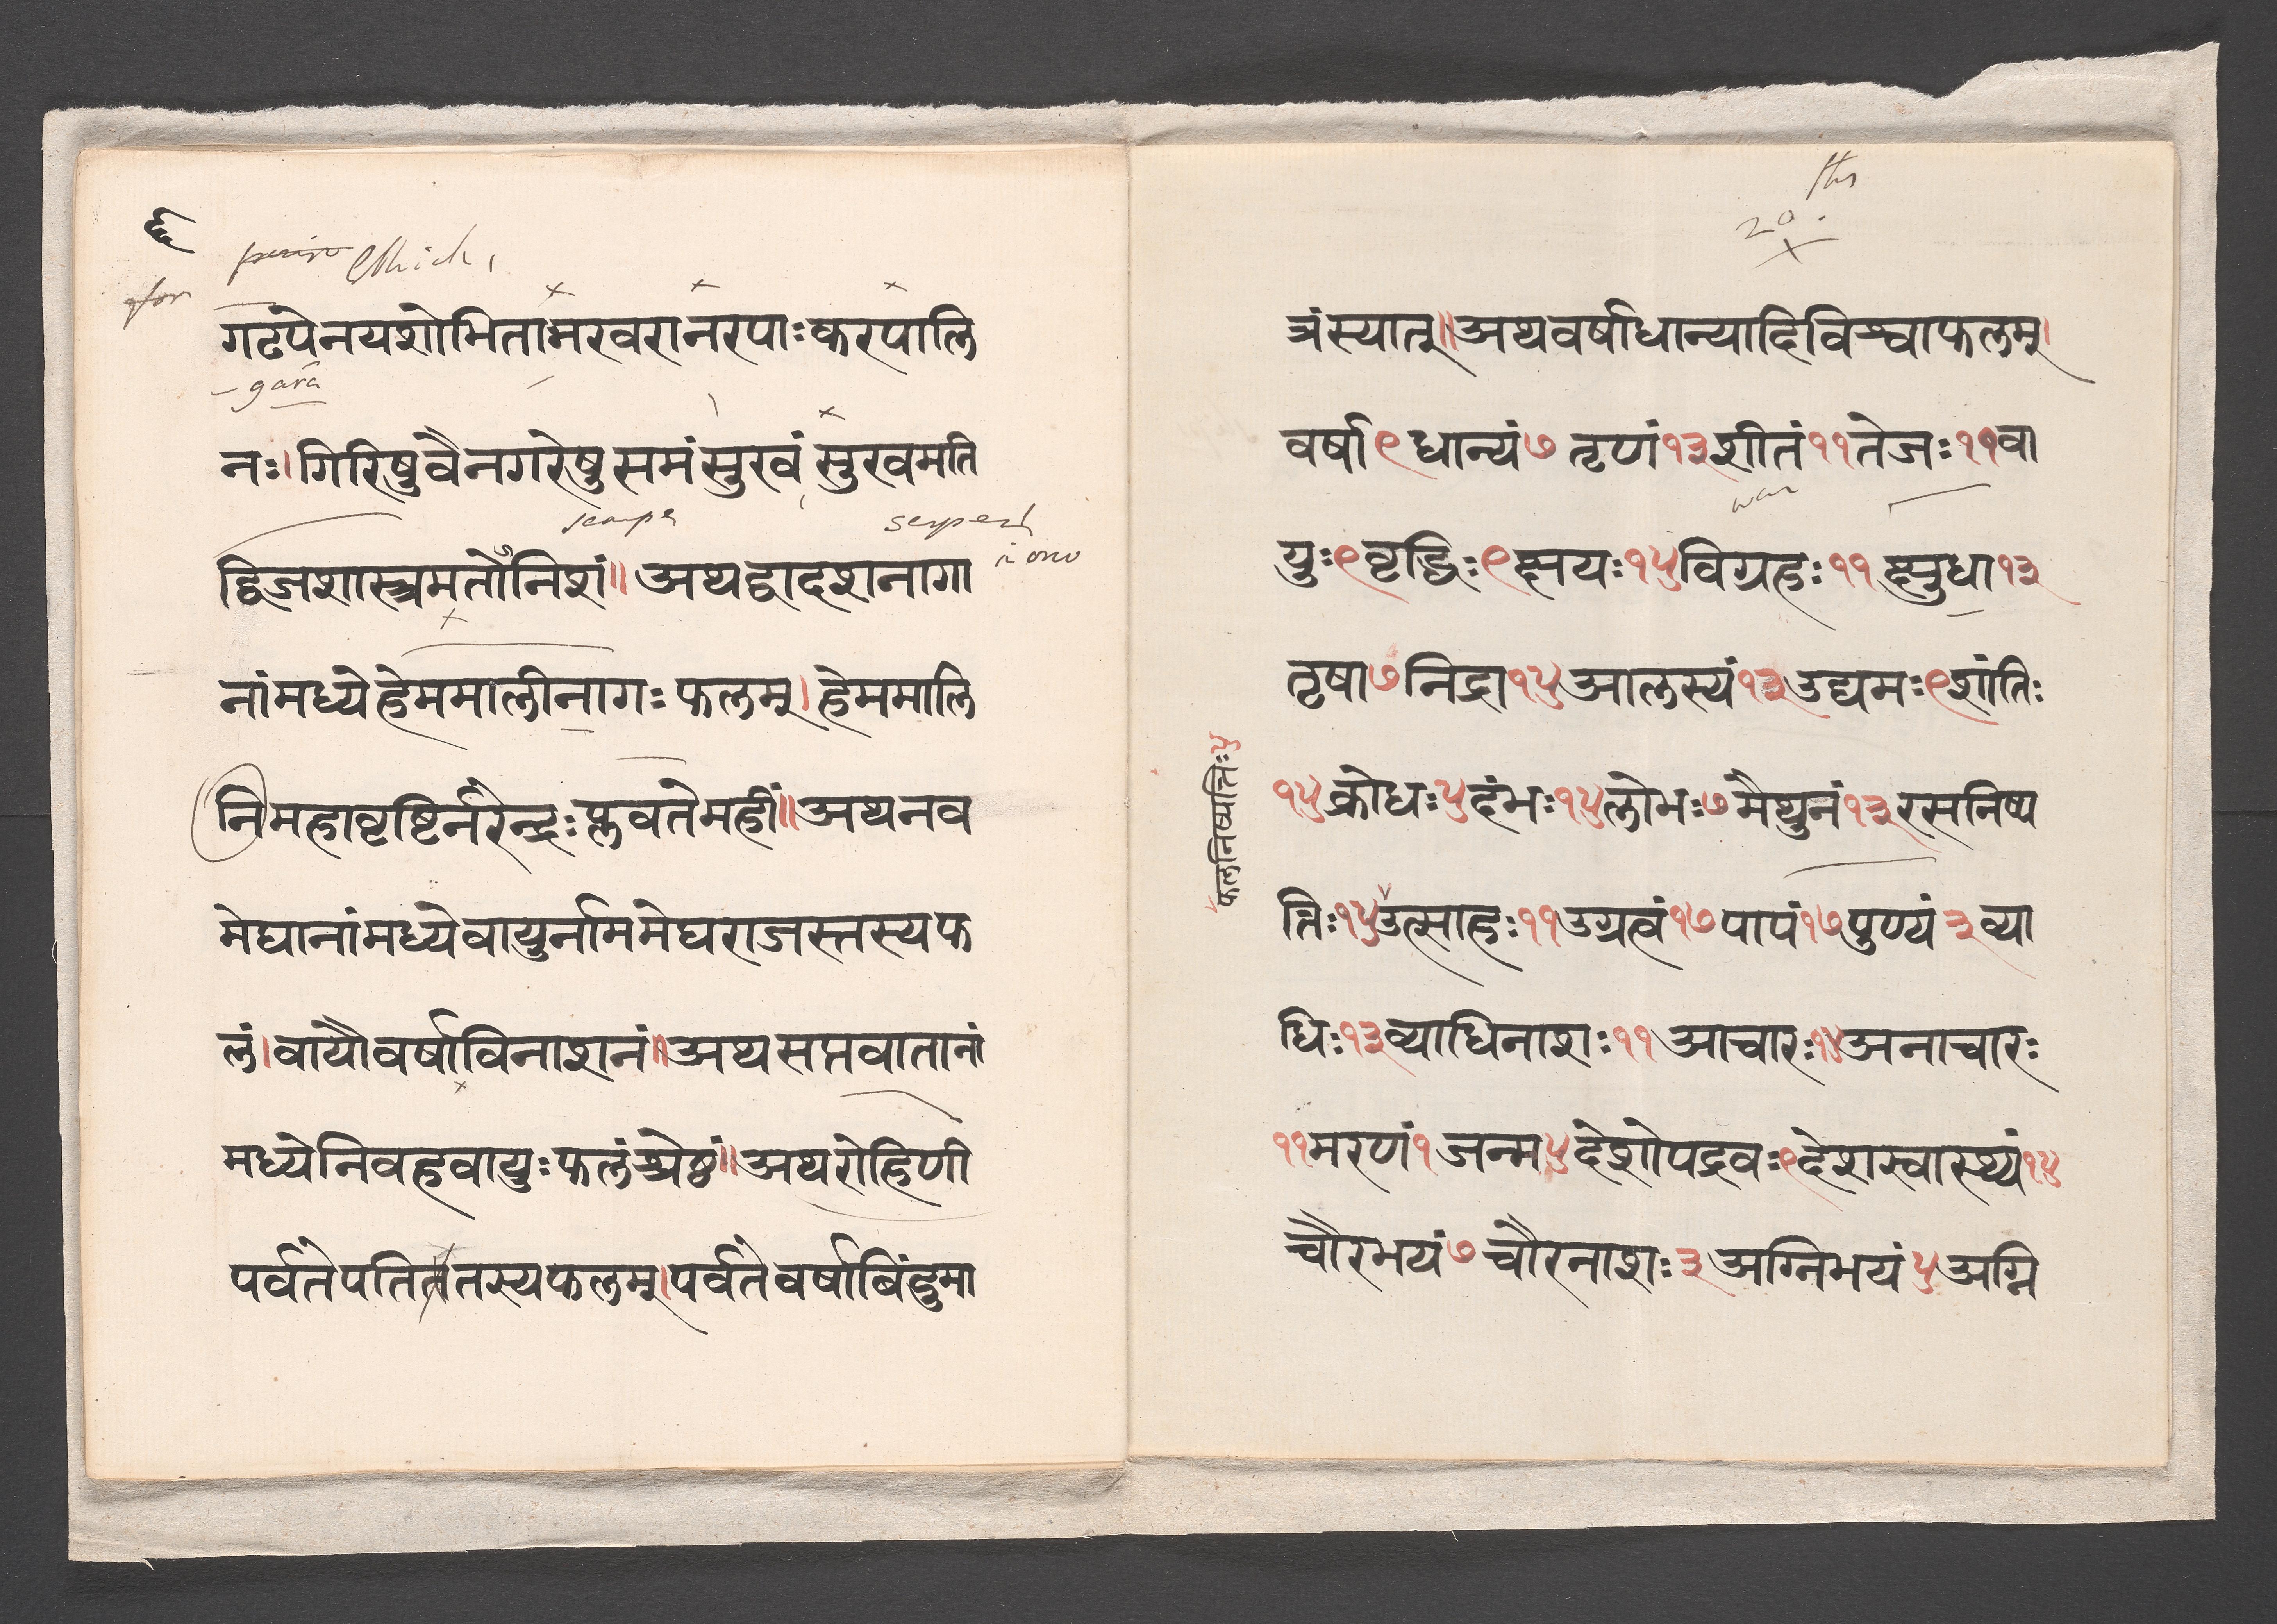 ६
गढपेनयशोभितामरवरानरपाःकरपालि
gara
नः।गिरिषुवैनगरेषुसमंसुखंसुखमति
serpent
द्विजशास्त्रमतोनिशं॥अथद्वादशनागा
नांमध्येहेममालीनागःफलम्।हेममालि
निमहावृष्टिर्नरेन्द्रःप्लवतेमहीं॥अथनव
मेघानांमध्येवायुर्नाममेघराजस्तस्यफ
लं।वायौवर्षाविनाशनं॥अथसप्तवातानां
मध्येनिवहवायुःफलंश्रेष्ठं॥अथरोहिणी
पर्वतेपतितातस्यफलम्।पर्वतेवर्षाबिंदुमा
20 ths
त्रंस्यात्॥अथवर्षाधान्यादिविश्वाफलम्।
वर्षा९धान्यं७तृणं१३शीतं११तेजः११वा
war
युः९वृद्धिः९क्षयः१५विग्रहः११क्षुधा१३
तृषा७निद्रा१५आलस्यं१३उद्यमः९शांतिः
१५क्रोधः५दंभः१५लोभः७मैथुनं१३रसनिष्प
त्तिः१५उत्साहः११उग्रत्वं१७पापं१७पुण्यं३व्या
धिः१३व्याधिनाशः११आचारः१५अनाचारः
११मरणं१जन्म५देशोपद्रवः९देशस्वास्थ्यं१५
चौरभयं७चौरनाशः३अग्निभयं५अग्नि
फलनिष्पत्तिः५